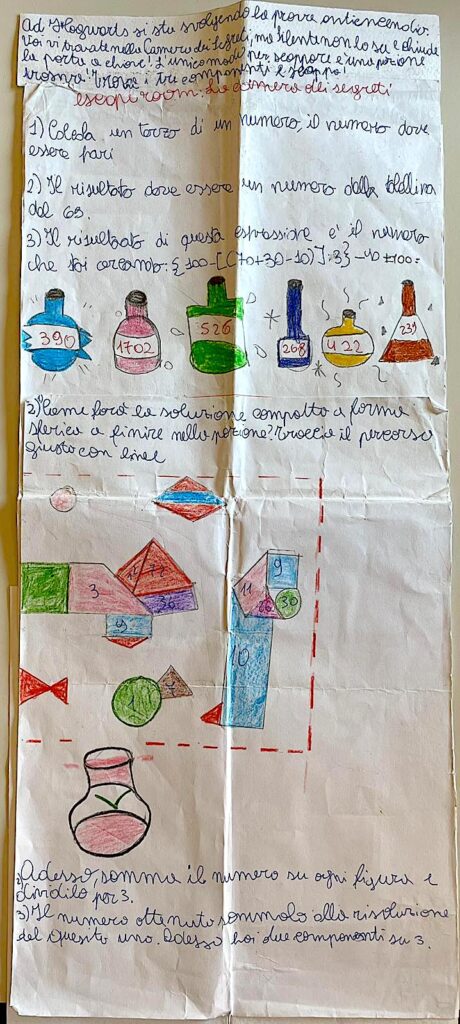 Ad Hogwarts si sta svolgendo la prova antincendio.
Voi vi trovate nella Camera dei Segreti, ma Silente non lo sa e chiude
la porta a chiave! L'unico modo per scappare è una pozione
trova i tre componenti e scappa!
escape room: la camera dei segreti
1) Calcola un terzo di un numero, il numero deve
essere pari
2) Il risultato deve essere un numero della tabellina
del 69.
3) Il risultato di questa espressione e' il numero
che stai cercando: {100-[(70+30-10)]:3}-40+100=
390
1702
526
268
422
239
2) Come farà la soluzione compatta a forma
sferica a finire nella pozione? Traccia il percorso
giusto con linee
3
12
36
9
1
4
9
11
26
30
10
Adesso, somma il numero su ogni figura e
dividilo per 3.
3) Il numero ottenuto sommalo alla risoluzione
del quesito uno. Adesso hai due componenti su 3.